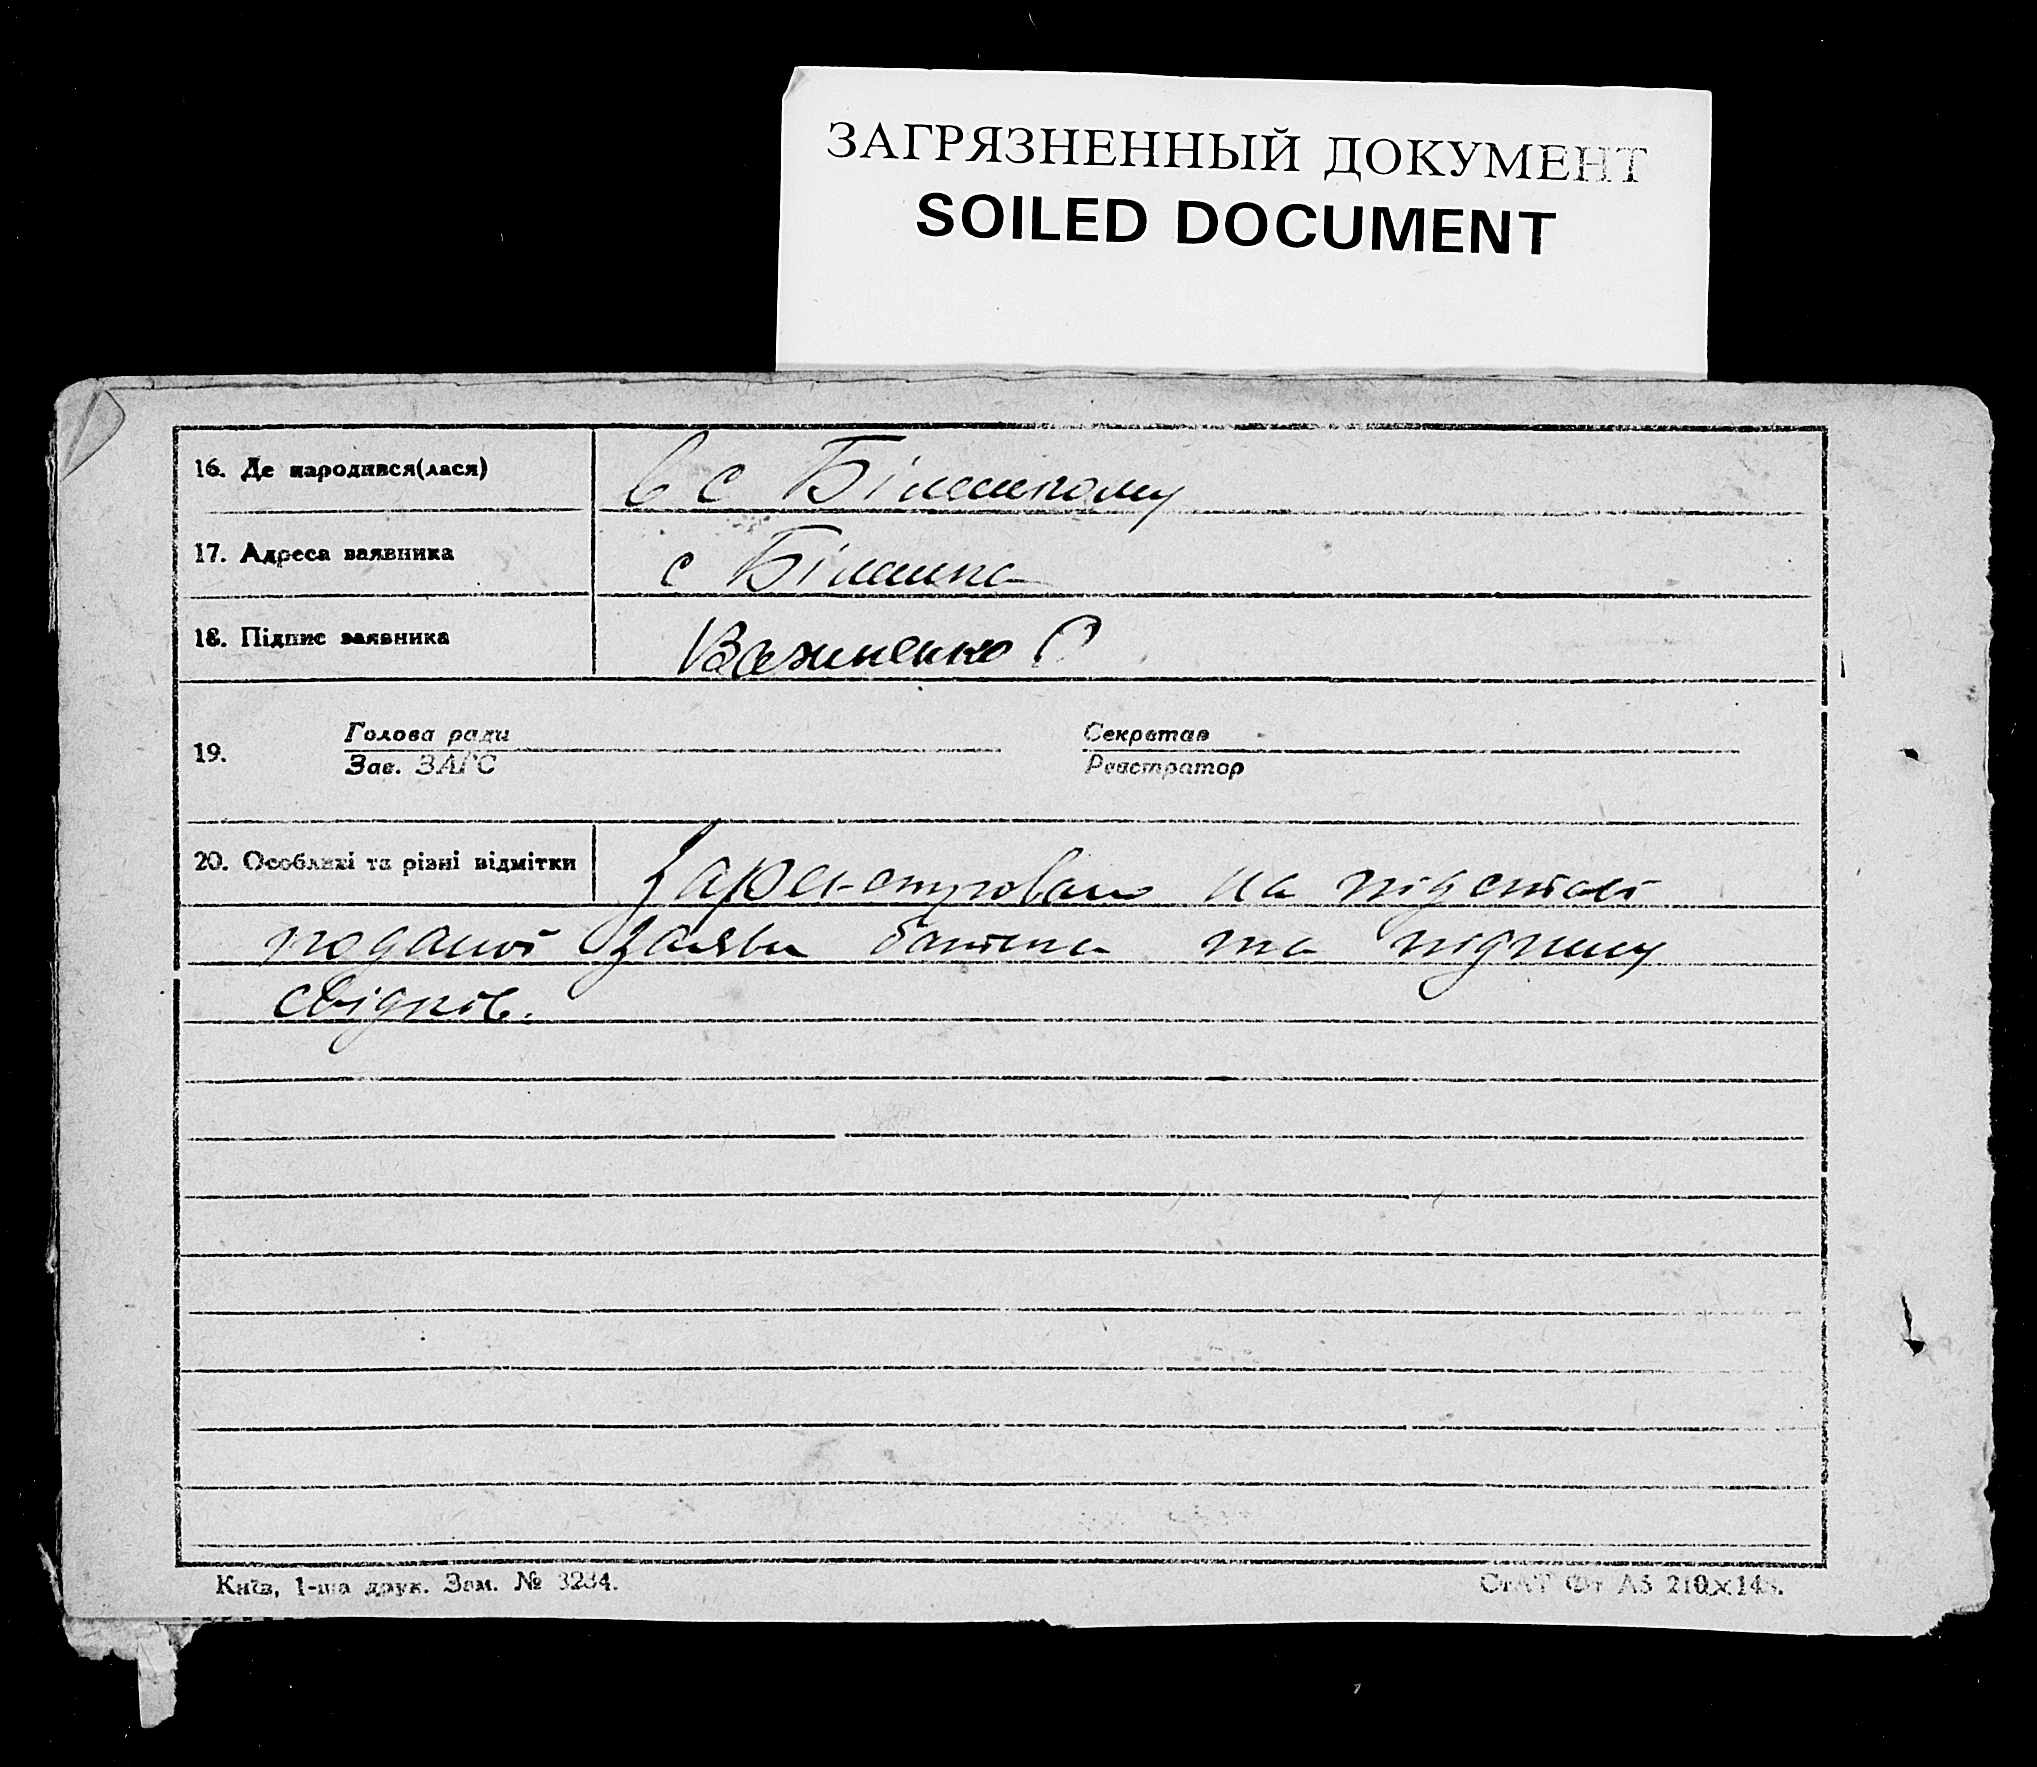 ЗАГРЯЗНЕННЫЙ ДОКУМЕНТ
SOILED DOCUMENT
16. Де народився(лася)
в с
17. Адреса заявника
с
18. Підпис заявника
19.
Голова ради
Зав. ЗАГС
Секретар
Реєстратор
20. Особливі та різні відмітки
на підставі
поданої заяви батька та підпису
свідків.
Київ, 1-ша друк. Зам. № 3234.
А5 210×148.